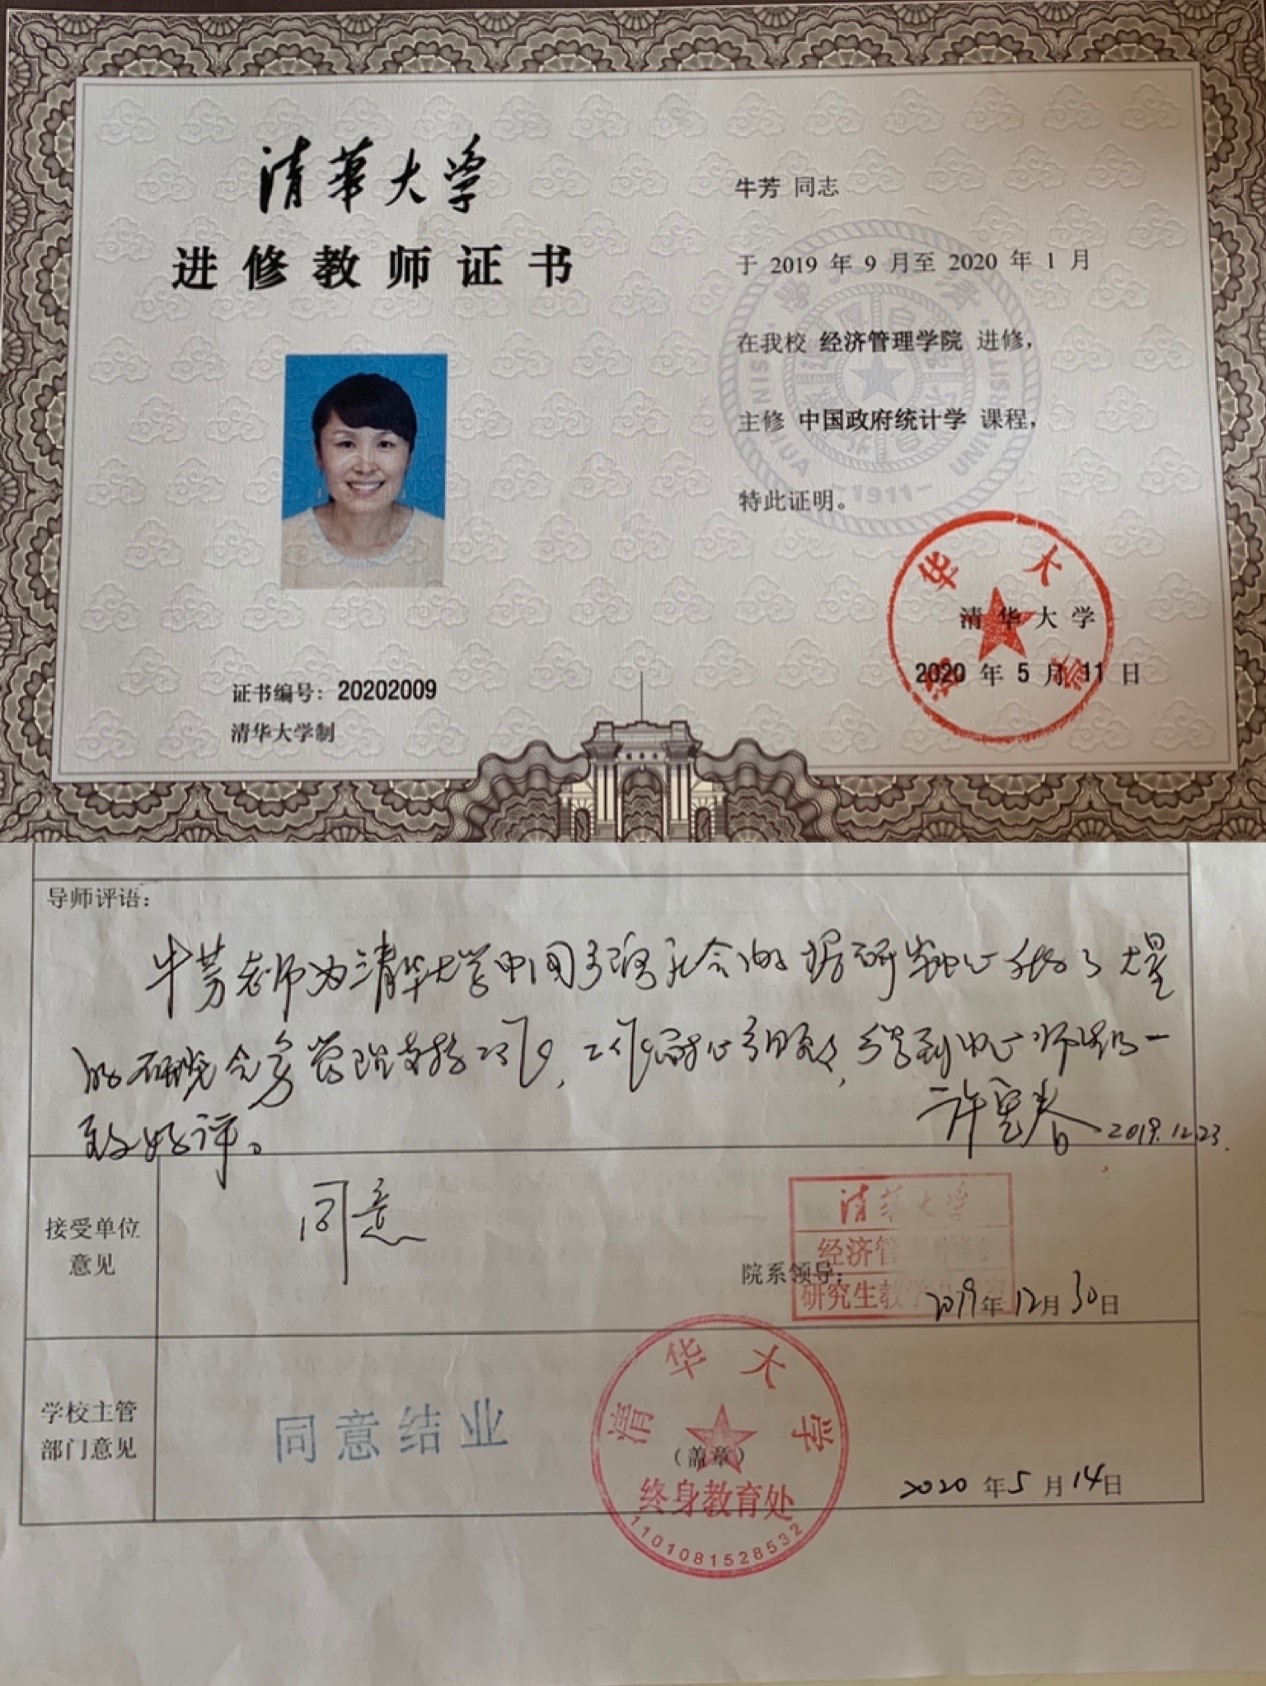 清華大学
进修教师证书
证书编号：20202009
清华大学制
牛芳 同志
于 2019 年 9 月至 2020 年 1 月
在我校 经济管理学院 进修，
主修 中国政府统计学 课程，
特此证明。
清华大学
2020 年 5 月 11 日
清华大学
1911
导师评语：
牛芳老师为清华大学中国经济社会数据研究中心做了大量
的研究会务管理支持工作，工作耐心细致，受到中心师生的一
致好评。
许宪春 2019.12.23
接受单位
意见
同意
清华大学
经济管
研究生教学
院系领导：
2019年12月30日
学校主管
部门意见
同意结业
清华大学
（盖章）
终身教育处
1101081528532
2020 年 5 月 14 日